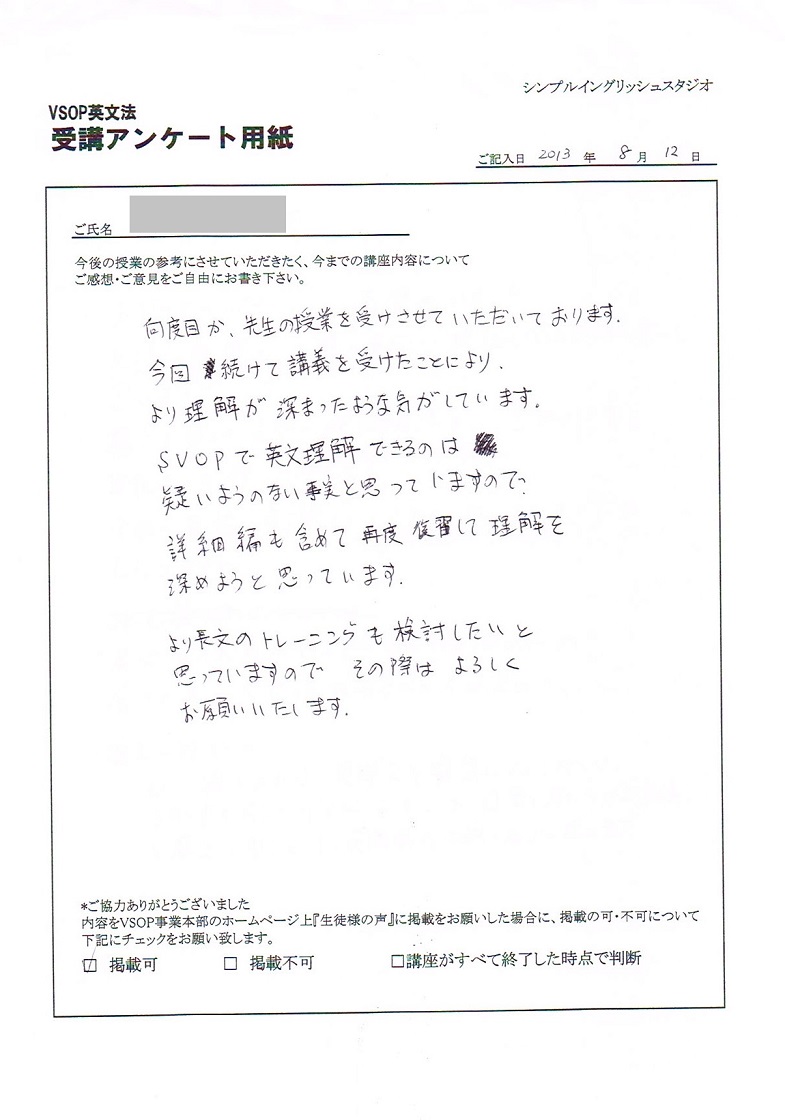 シンプルイングリッシュスタジオ
VSOP英文法
受講アンケート用紙
ご記入日 2013 年 8 月 12 日
ご氏名
今後の授業の参考にさせていただきたく、今までの講座内容について
ご感想・ご意見をご自由にお書き下さい。
何度目か、先生の授業を受けさせていただいております。
今回 続けて講義を受けたことにより、
より理解が深まったような気がしています。
SVOPで英文理解できるのは
疑いようのない事実と思っていますので、
詳細編も含めて再度復習して理解を
深めようと思っています。
より長文のトレーニングも検討したいと
思っていますので その際はよろしく
お願いいたします。
*ご協力ありがとうございました
内容をVSOP事業本部のホームページ上『生徒様の声』に掲載をお願いした場合に、掲載の可・不可について
下記にチェックをお願い致します。
☑ 掲載可 □ 掲載不可 □講座がすべて終了した時点で判断